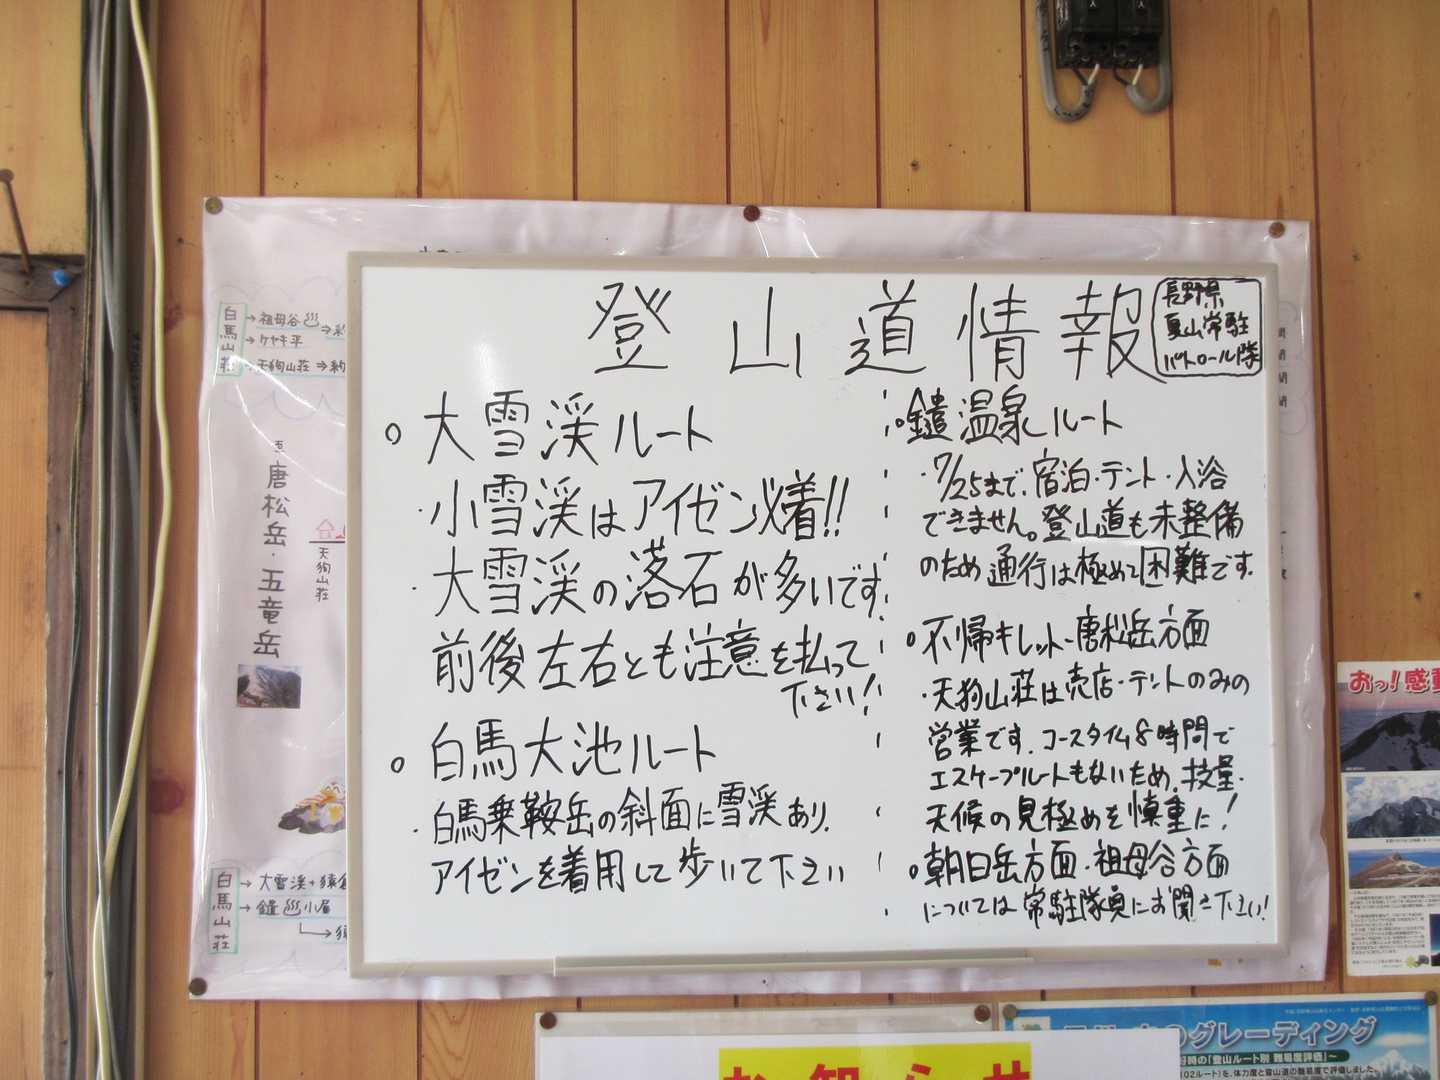 登山道情報
長野県
夏山常駐
パトロール隊
○大雪渓ルート
・小雪渓はアイゼン必着!!
・大雪渓の落石が多いです。
前後左右とも注意を払って
下さい!
○白馬大池ルート
・白馬乗鞍岳の斜面に雪渓あり.
アイゼンを着用して歩いて下さい
○鑓温泉ルート
・7/25まで、宿泊・テント・入浴
できません。登山道も未整備
のため通行は極めて困難です.
○不帰キレット-唐松岳方面
・天狗山荘は売店・テントのみの
営業です.コースタイム8時間で
エスケープルートもないため.技量・
天候の見極めを慎重に!
○朝日岳方面・祖母谷方面
については常駐隊員にお聞き下さい!
白馬山荘
→祖母谷♨
→ケヤキ平
→天狗山荘⇒約
至唐松岳・五竜岳
天狗山荘
白馬山荘
→大雪渓+猿倉
→鑓♨小屋
おっ!感動
グレーディング
「登山ルート別 難易度評価」
お知らせ